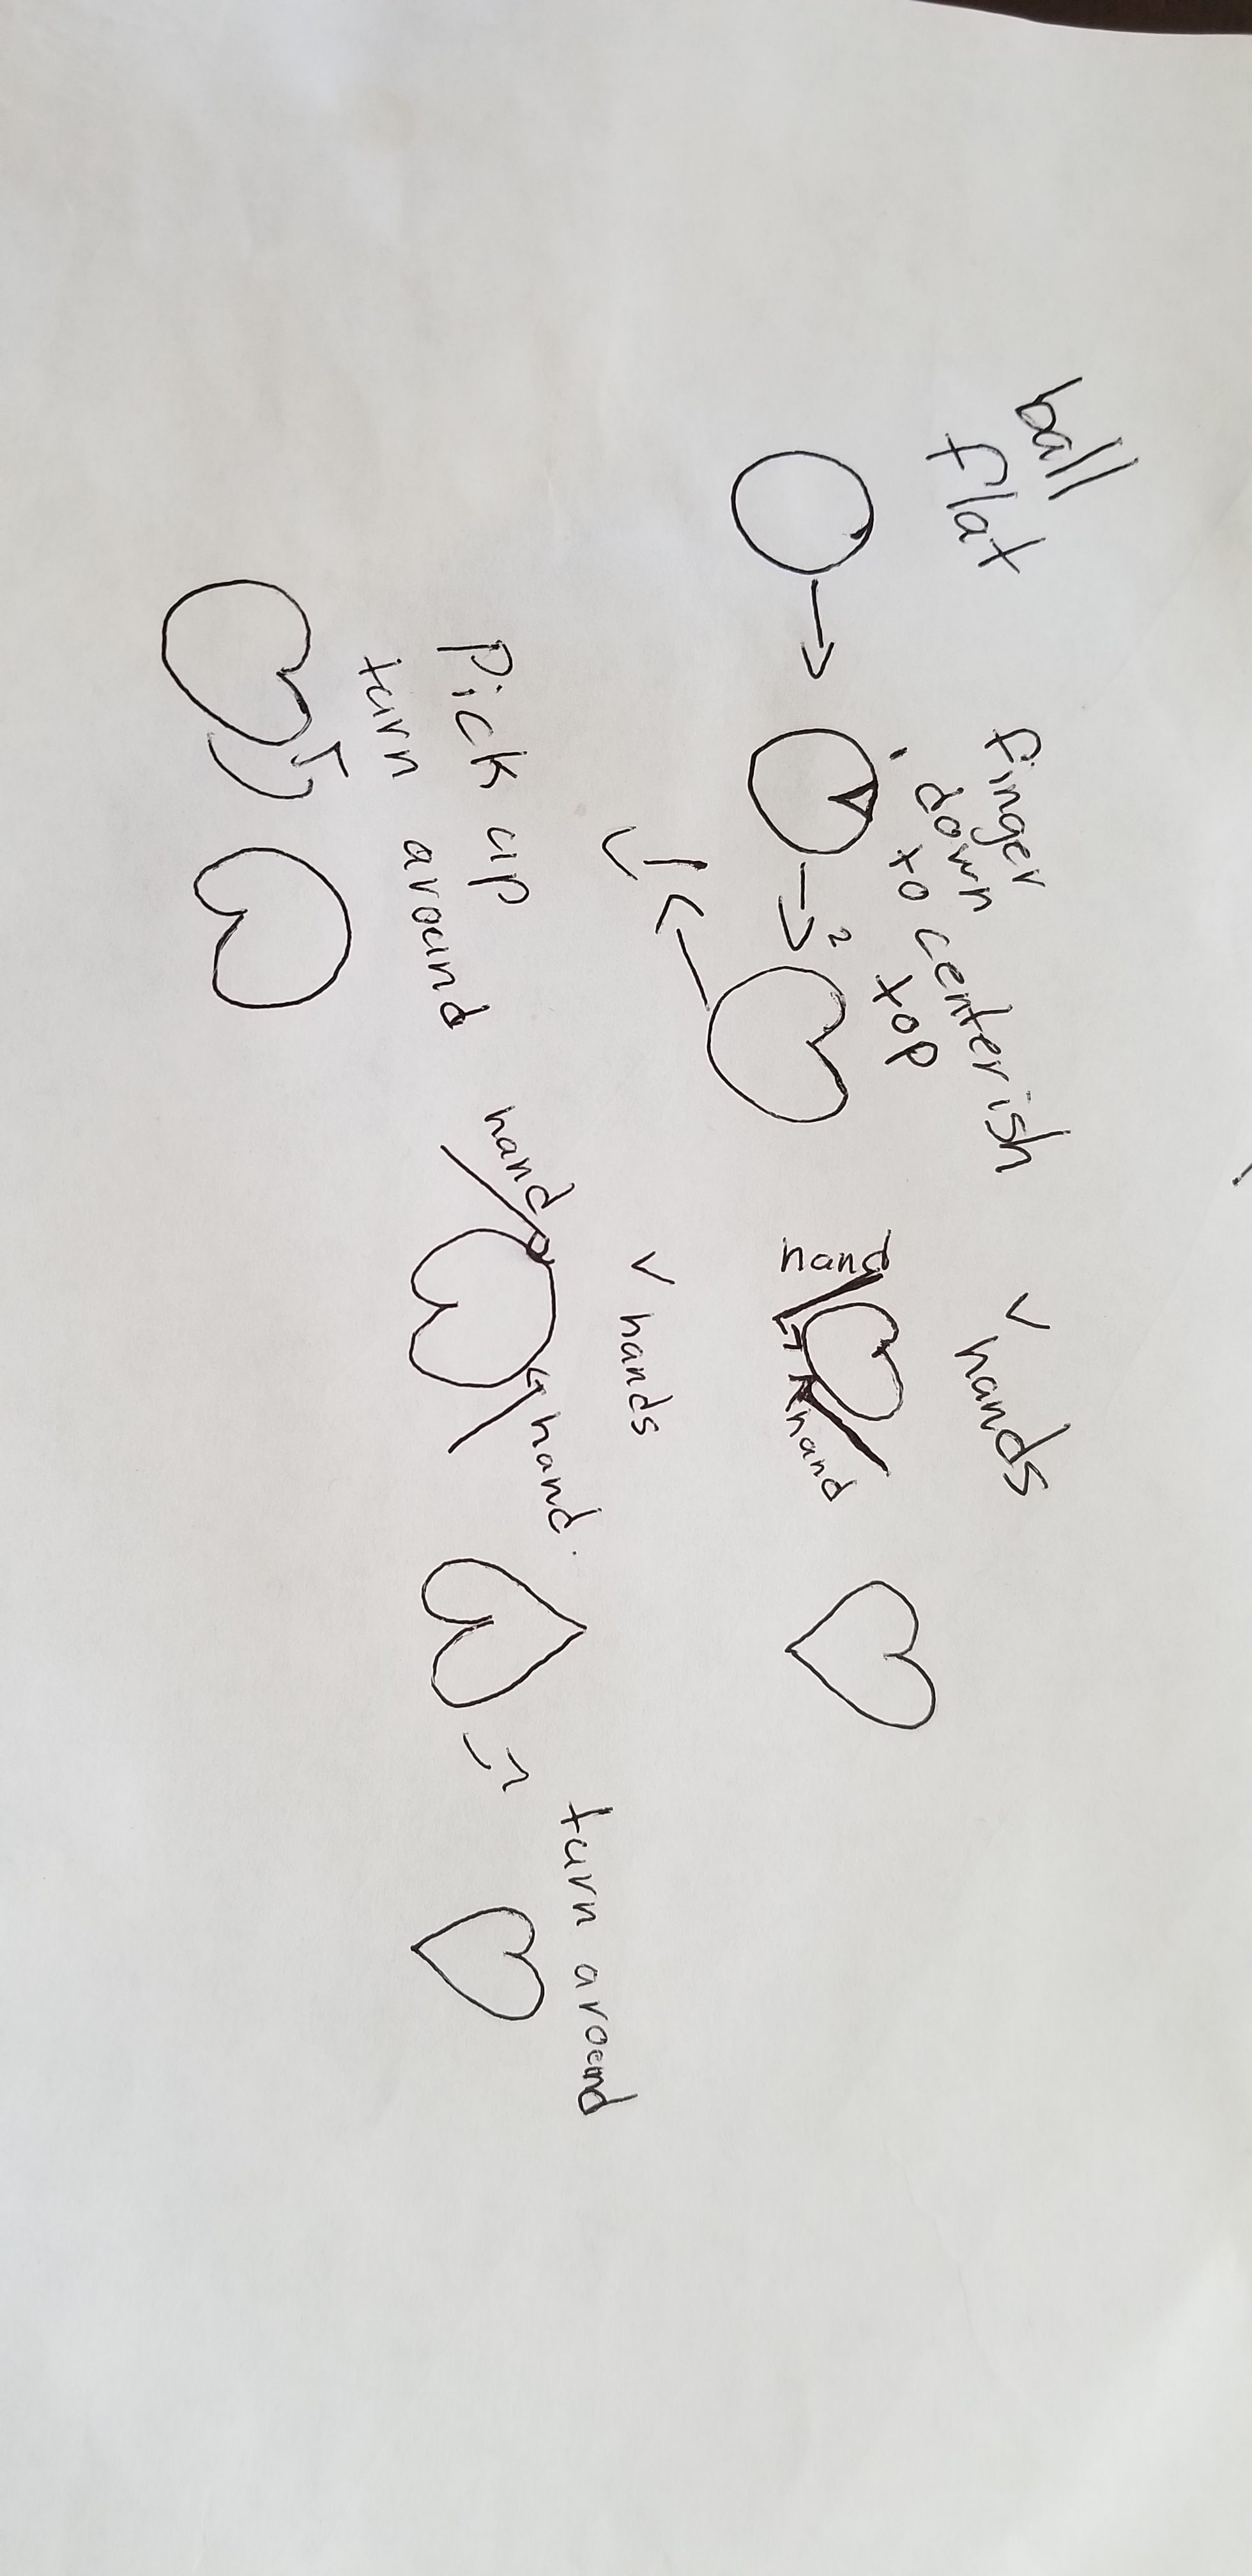 ball
flat
finger
down
to centerish
top
1
2
v hands
hand
hand
Pick up
turn around
v hands
hand
hand.
turn around